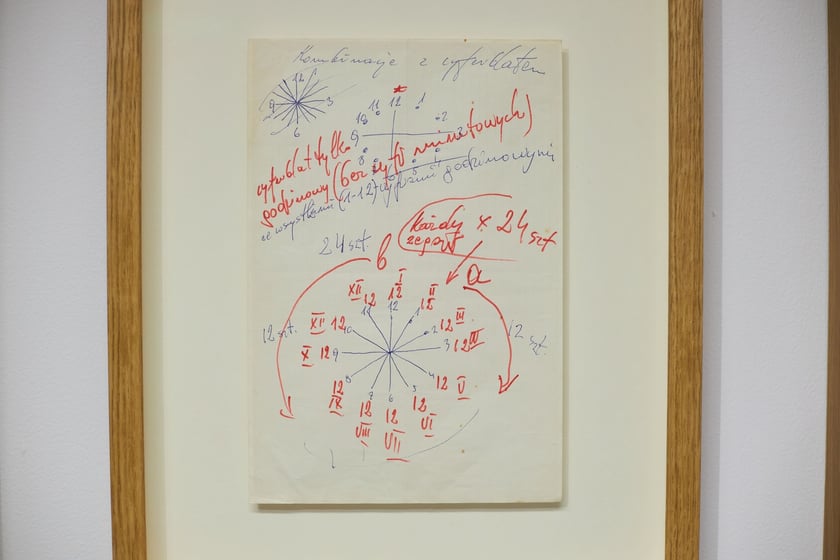 Kombinacje z cyferblatem
12
9 3
6
11 12 1
10 2
9
8 4
cyferblat tylko
godzinowy (bez cyfr minutowych)
ze wszystkimi (1-12) cyframi godzinowymi
24 szt.
Każdy x 24 szt
zegar
b
a
I
XII 12 II
12 12
11 12 1
XII 12 10 2 12 III
12 szt. 12 szt.
X 12 9 3 12 IV
8 4 12 V
12 7 6 5 12
IX 12 12 VI
VIII VII